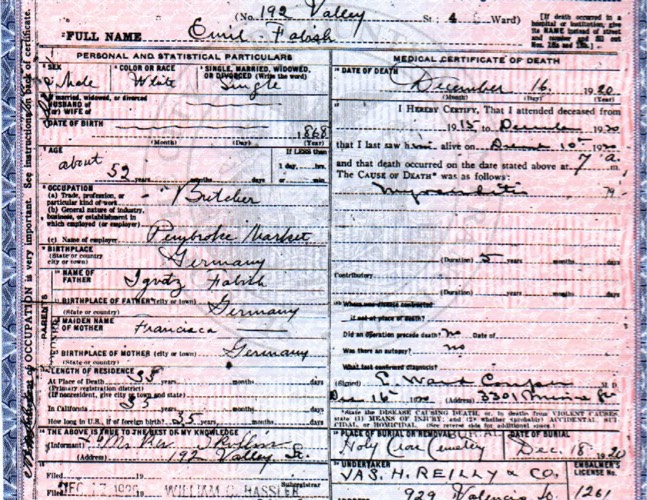 (No. 192 Valley St; 4 Ward)
[If death occurred in a hospital or institution, give its NAME instead of street and number and fill out Nos. 18a and 18b.]
FULL NAME Emil Fabish
PERSONAL AND STATISTICAL PARTICULARS
SEX Male
COLOR OR RACE White
SINGLE, MARRIED, WIDOWED, OR DIVORCED (Write the word) Single
If married, widowed, or divorced
HUSBAND OF
(or) WIFE of
DATE OF BIRTH 1868
(Month) (Day) (Year)
AGE about 52 years months days
If LESS than 1 day, hrs.
OCCUPATION
(a) Trade, profession, or particular kind of work Butcher
(b) General nature of industry, business, or establishment in which employed (or employer)
(c) Name of employer Pembroke Market
BIRTHPLACE
(State or country
city or town) Germany
PARENTS
NAME OF FATHER Ignatz Fabish
BIRTHPLACE OF FATHER (city or town)
(State or country) Germany
MAIDEN NAME OF MOTHER Francisca
BIRTHPLACE OF MOTHER (city or town)
(State or country) Germany
LENGTH OF RESIDENCE
At Place of Death 35 years months days
(Primary registration district)
(If nonresident, give city or town and state)
In California 35 years months days
How long in U.S., if of foreign birth? 35 years months days
THE ABOVE IS TRUE TO THE BEST OF MY KNOWLEDGE
(Informant)
(Address) 192 Valley St.
Filed
WILLIAM C. HASSLER
Filed
MEDICAL CERTIFICATE OF DEATH
DATE OF DEATH
December 16, 1920
(Month) (Day) (Year)
I HEREBY CERTIFY, That I attended deceased from
1915 to December 1920
that I last saw him alive on 10th 1920
and that death occurred on the date stated above at 7 a m.
The CAUSE OF DEATH* was as follows:
Myocarditis
(Duration) 5 years months days
Contributory
(Duration) years months days
Where was disease contracted
if not at place of death?
Did an operation precede death? no Date of
Was there an autopsy? no
What test confirmed diagnosis?
(Signed) M. D.
Dec 16th 1920 (Address) 3301
*State the DISEASE CAUSING DEATH, or, in deaths from VIOLENT CAUSES, (1) MEANS OF INJURY; and (2) whether (probably) ACCIDENTAL, SUICIDAL, or HOMICIDAL. (See reverse side for additional space.)
PLACE OF BURIAL OR REMOVAL
Holy Cross Cemetery
DATE OF BURIAL
Dec. 18 1920
UNDERTAKER
JAS. H. REILLY & CO.
929 Valencia St.
EMBALMER'S LICENSE No. 1261
of OCCUPATION is very important. See instructions on back of certificate.